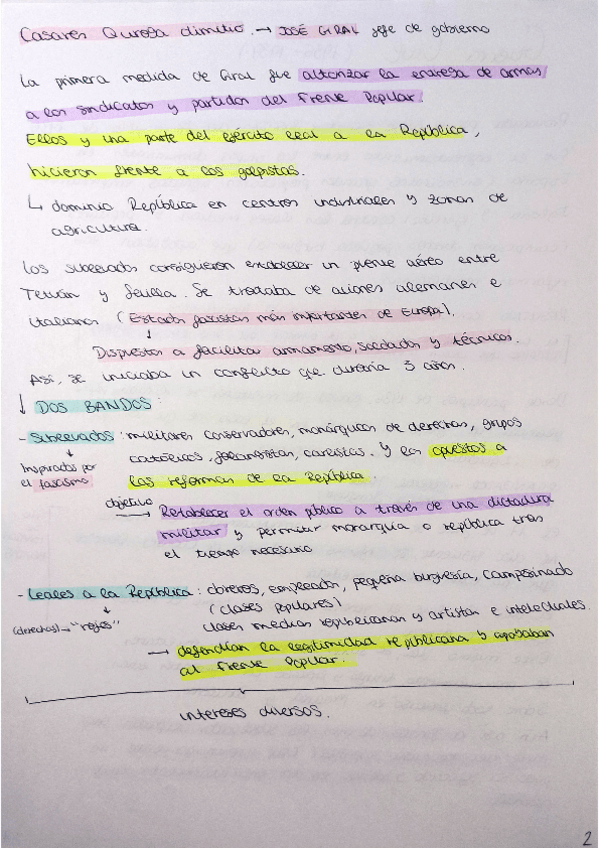 Casares Quiroga dimitio. → JOSÉ GIRAL jefe de gobierno
La primera medida de Giral fue autorizar la entrega de armas
a los sindicatos y partidos del Frente Popular.
Ellos y una parte del ejército leal a la República,
hicieron frente a los golpistas.
↳ dominio República en centros industriales y zonas de
agricultura.
Los sublevados consiguieron establecer un puente aéreo entre
Tetuán y Sevilla. Se trataba de aviones alemanes e
italianos (Estados fascistas más importantes de Europa).
↓
Dispuestos a facilitar armamento, soldados y técnicos.
Así, se iniciaba un conflicto que duraría 3 años.
↓ DOS BANDOS:
- Sublevados: militares conservadores, monárquicos de derechas, grupos
católicos, falangistas, carlistas. Y los opuestos a
las reformas de la República.
↓
Inspirados por
el fascismo
objetivo → Restablecer el orden público a través de una dictadura
militar y permitir monarquía o república tras
el tiempo necesario
- Leales a la República: obreros, empleados, pequeña burguesía, campesinado
(clases populares)
clases medias republicanas y artistas e intelectuales.
↓
(derechas) → "rojos"
→ defendían la legitimidad republicana y apoyaban
al Frente Popular.
intereses diversos.
2